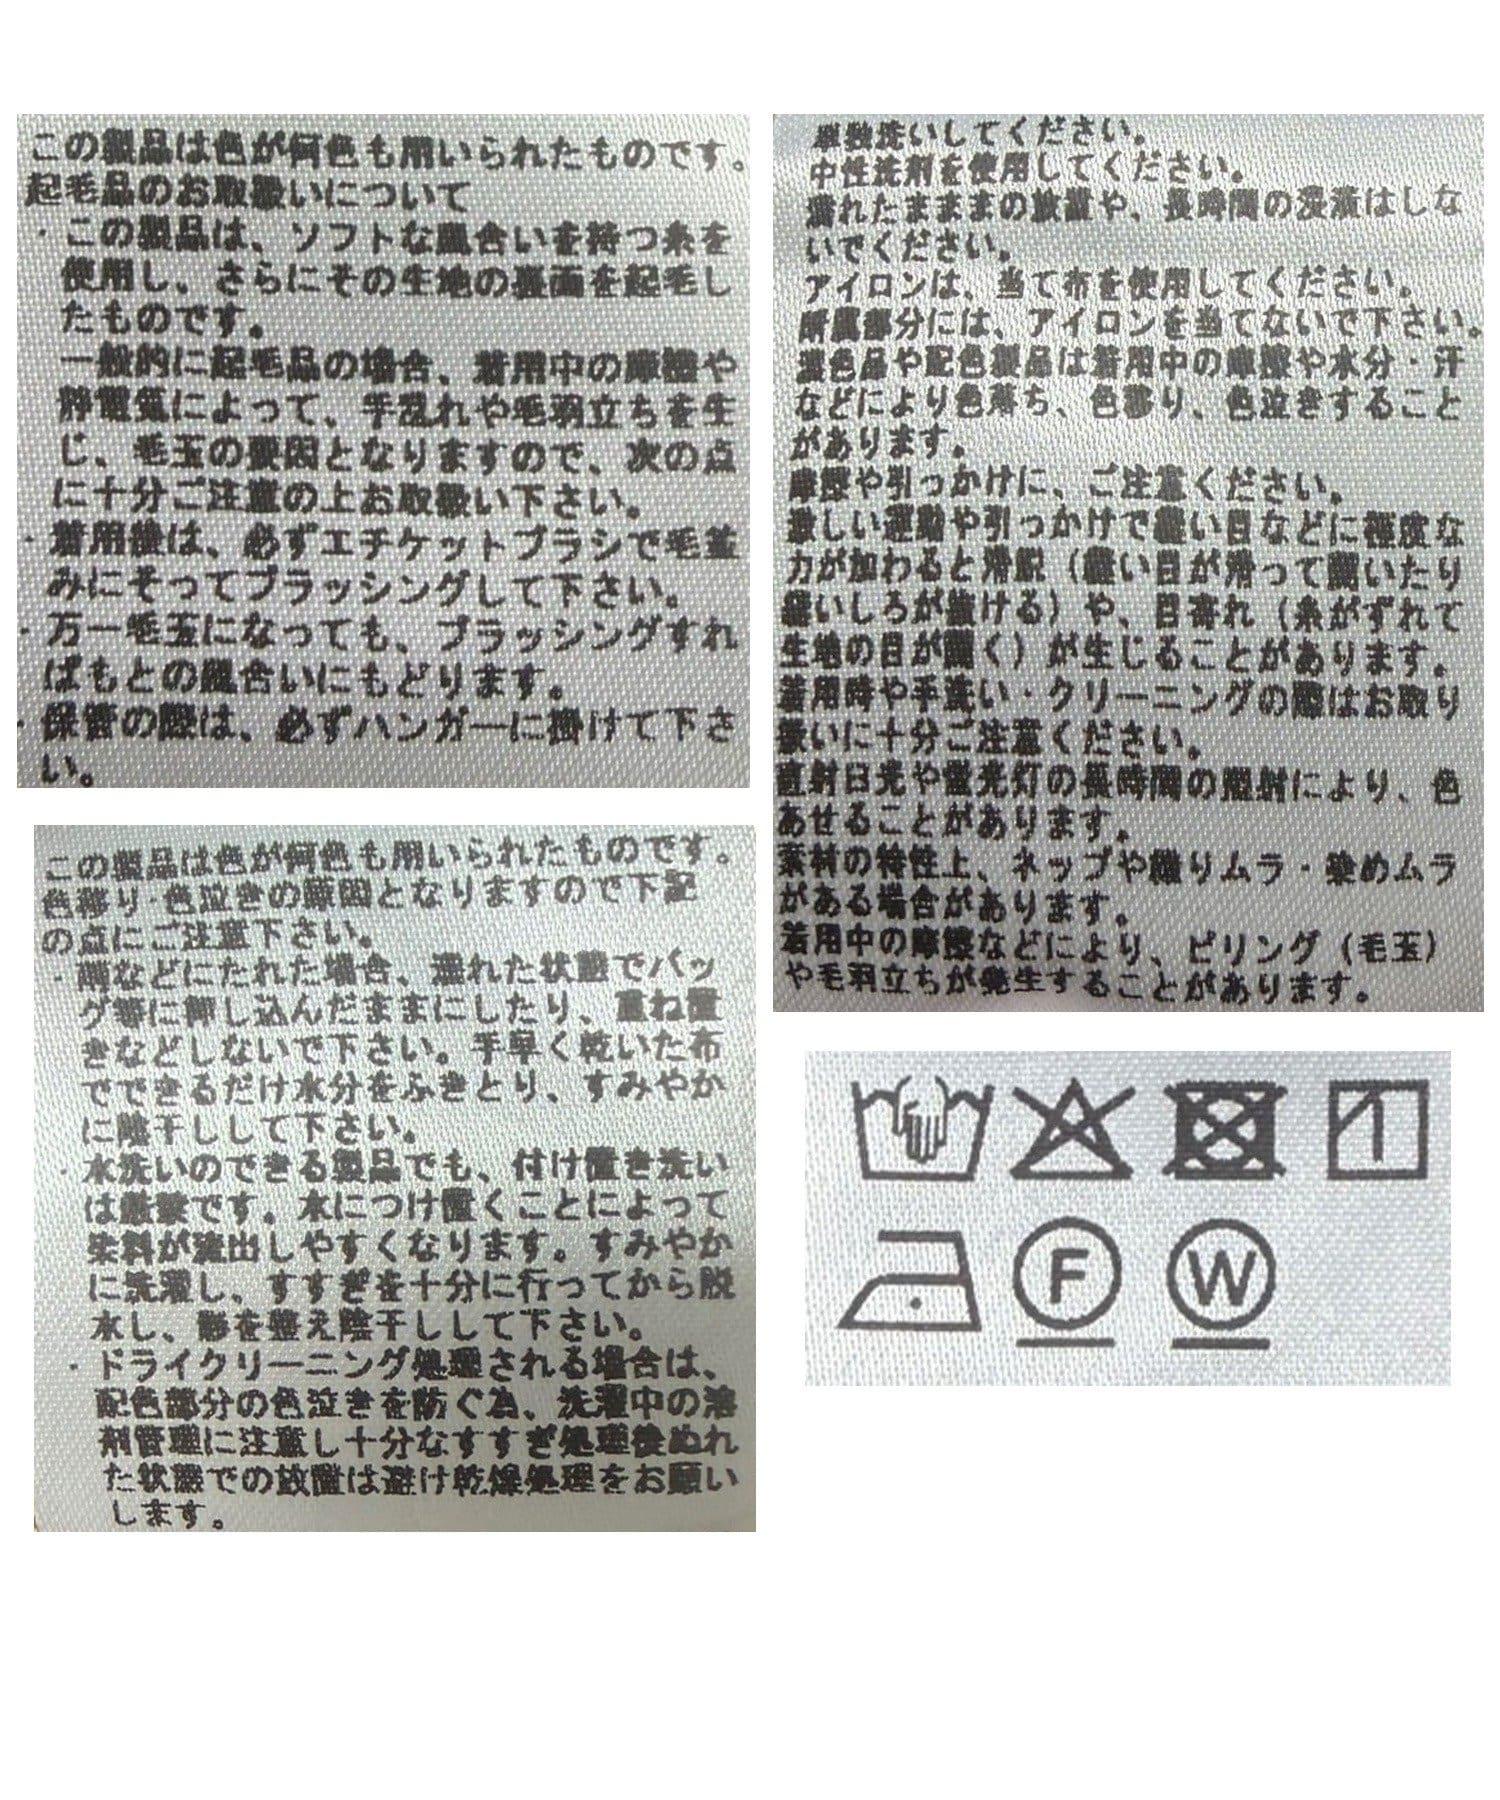 この製品は色が何色も用いられたものです。
起毛品のお取扱いについて
・この製品は、ソフトな風合いを持つ糸を
使用し、さらにその生地の裏面を起毛し
たものです。
一般的に起毛品の場合、着用中の摩擦や
静電気によって、手乱れや毛羽立ちを生
じ、毛玉の要因となりますので、次の点
に十分ご注意の上お取扱い下さい。
・着用後は、必ずエチケットブラシで毛並
みにそってブラッシングして下さい。
・万一毛玉になっても、ブラッシングすれ
ばもとの風合いにもどります。
・保管の際は、必ずハンガーに掛けて下さ
い。
この製品は色が何色も用いられたものです。
色移り・色泣きの原因となりますので下記
の点にご注意下さい。
・雨などにたれた場合、濡れた状態でバッ
グ等に押し込んだままにしたり、重ね置
きなどしないで下さい。手早く乾いた布
でできるだけ水分をふきとり、すみやか
に陰干しして下さい。
・水洗いのできる製品でも、付け置き洗い
は厳禁です。水につけ置くことによって
染料が流出しやすくなります。すみやか
に洗濯し、すすぎを十分に行ってから脱
水し、形を整え陰干しして下さい。
・ドライクリーニング処理される場合は、
配色部分の色泣きを防ぐ為、洗濯中の溶
剤管理に注意し十分なすすぎ処理後ぬれ
た状態での放置は避け乾燥処理をお願い
します。
単独洗いしてください。
中性洗剤を使用してください。
濡れたままの放置や、長時間の浸漬はしな
いでください。
アイロンは、当て布を使用してください。
附属部分には、アイロンを当てないで下さい。
濃色品や配色製品は着用中の摩擦や水分・汗
などにより色落ち、色移り、色泣きすること
があります。
摩擦や引っかけに、ご注意ください。
激しい運動や引っかけで縫い目などに極度な
力が加わると滑脱（縫い目が滑って開いたり
縫いしろが抜ける）や、目寄れ（糸がずれて
生地の目が開く）が生じることがあります。
着用時や手洗い・クリーニングの際はお取り
扱いに十分ご注意ください。
直射日光や蛍光灯の長時間の照射により、色
あせることがあります。
素材の特性上、ネップや織りムラ・染めムラ
がある場合があります。
着用中の摩擦などにより、ピリング（毛玉）
や毛羽立ちが発生することがあります。
F W